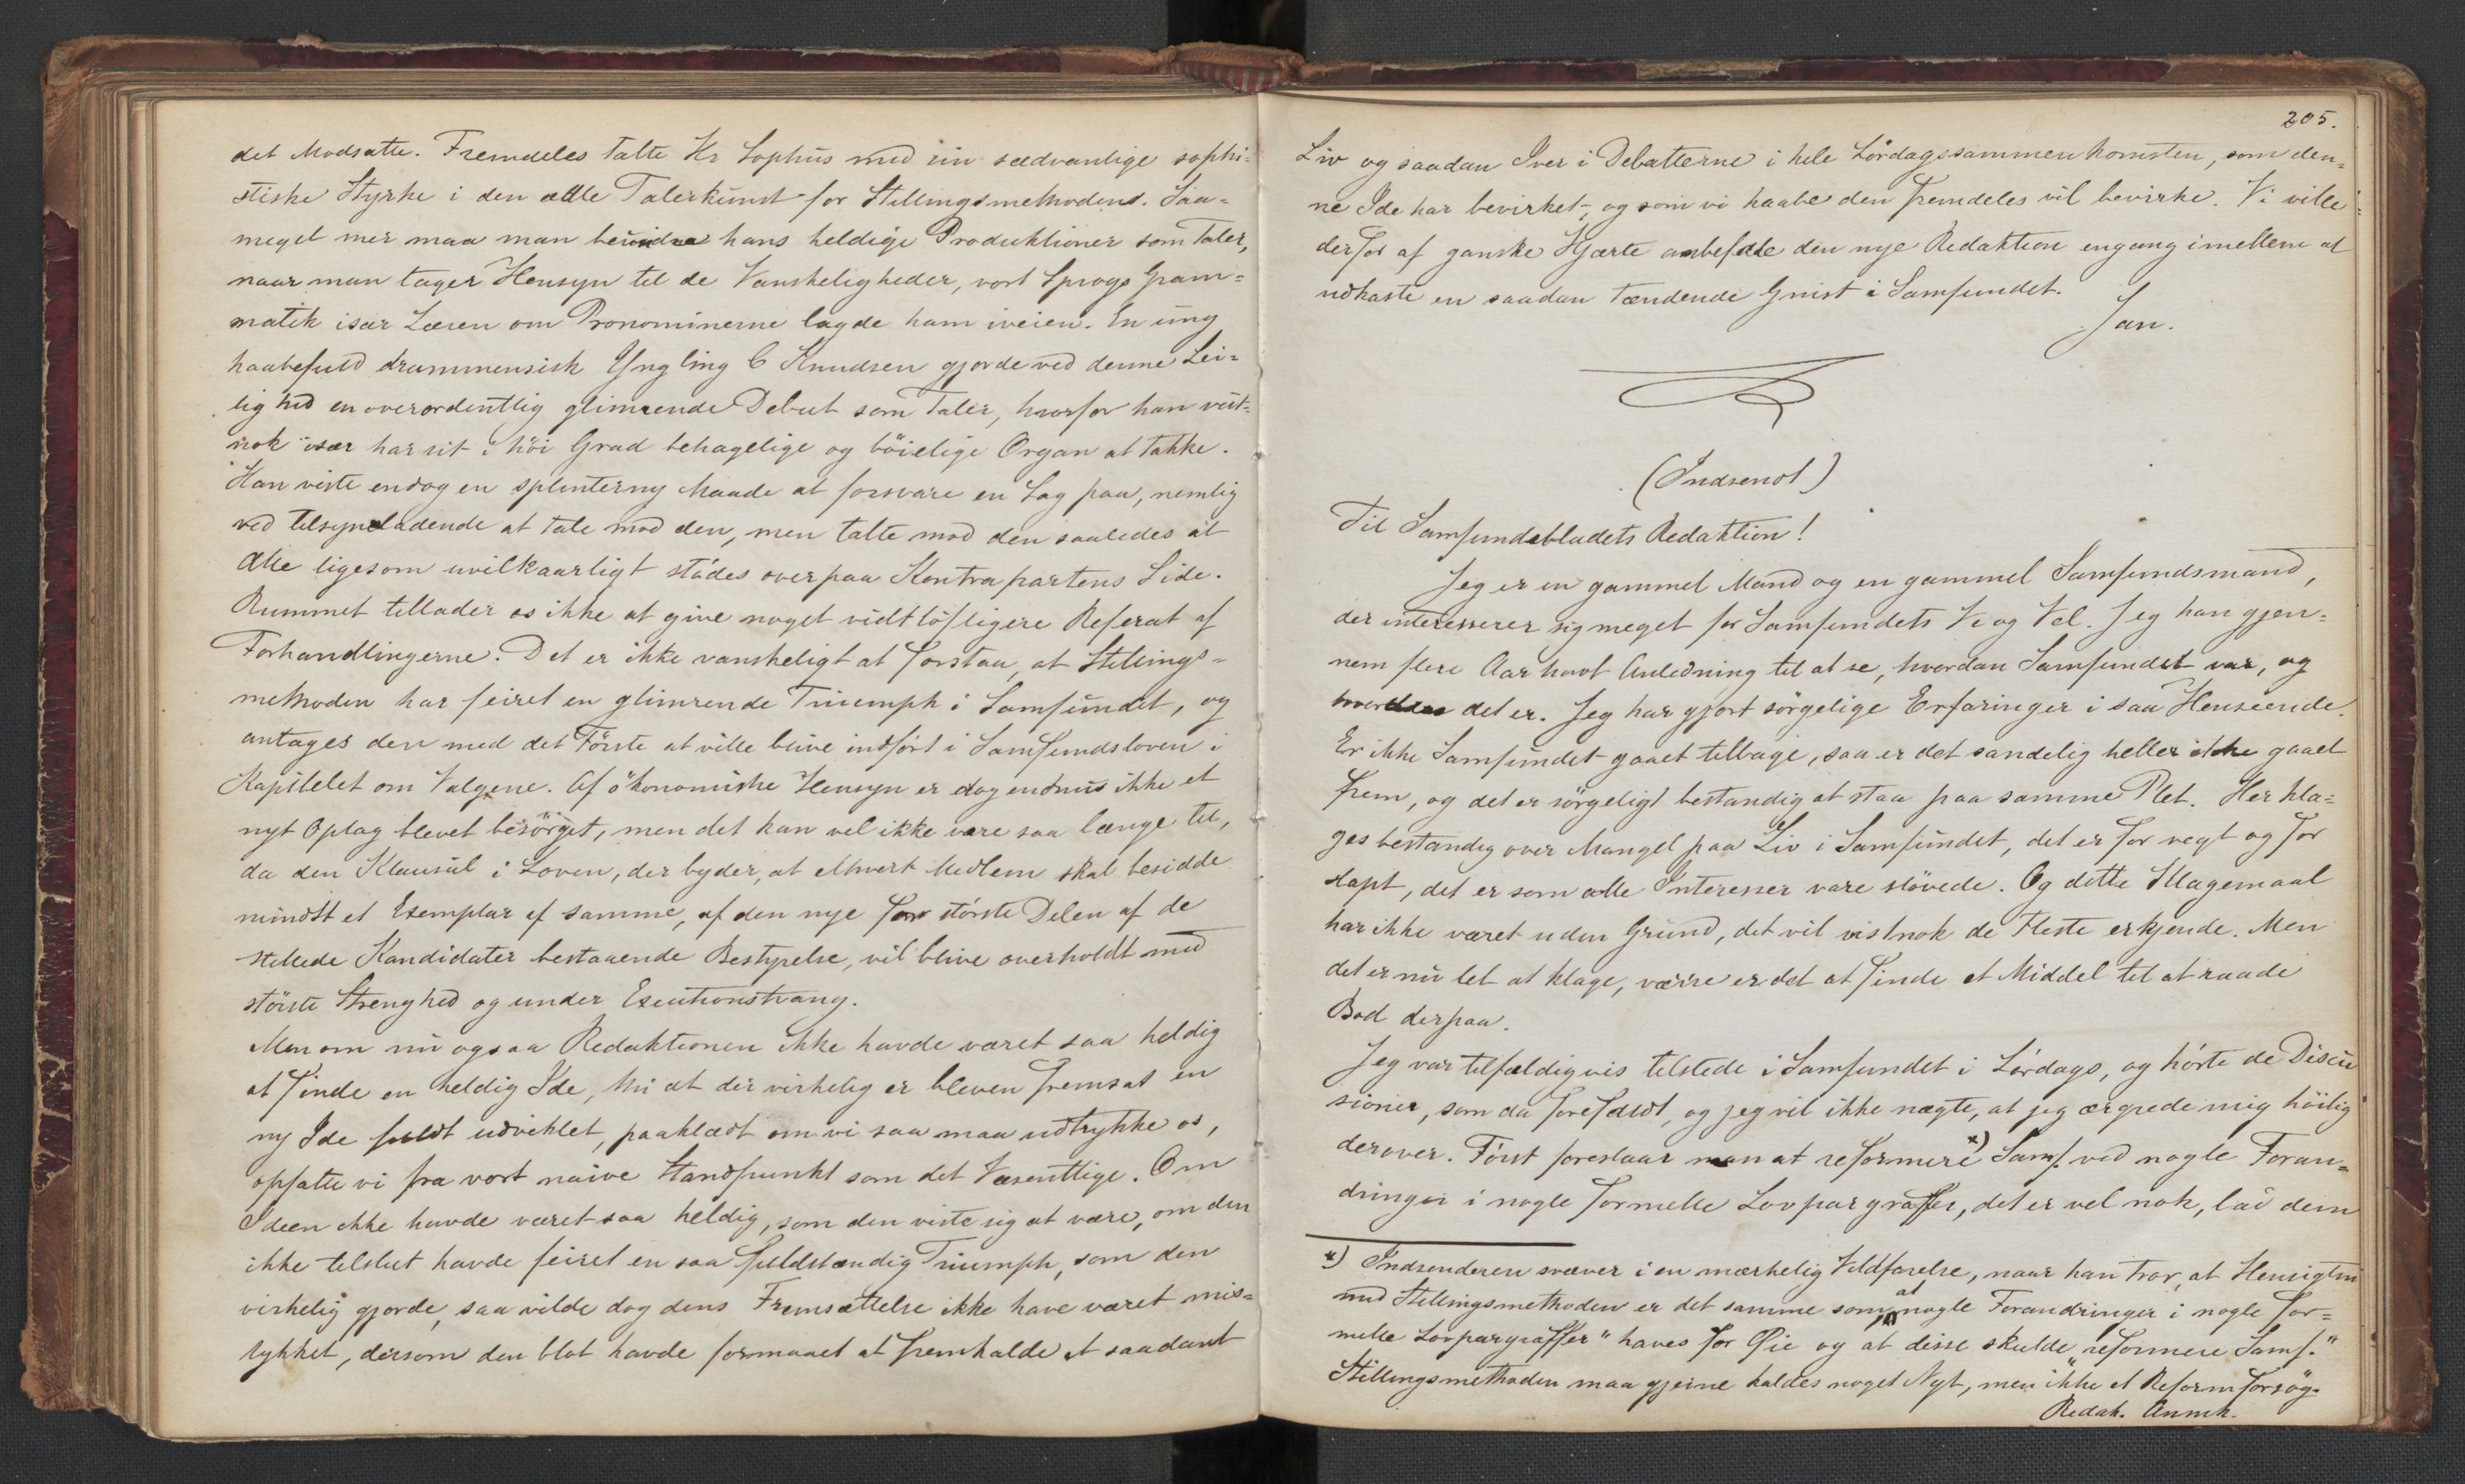 det Modsatte. Fremdeles talte Hr Sophus med sin sædvanlige sophi=
stiske Styrke i den ædle Talerkunst for Stillingsmethoden. Saa=
meget mer maa man beundre hans heldige Produktioner som Taler,
naar man tager Hensyn til de Vanskeligheder, vort Sprogs Gram=
matik især Læren om Pronominerne lagde ham iveien. En ung
haabefuld drammensisk Yngling C Knudsen gjorde ved denne Lei=
lighed en overordentlig glimrende Debut som Taler, hvorfor han vist=
nok især har sit i höi Grad behagelige og böielige Organ at takke.
Han viste endog en splinterny Maade at forsvare en Sag paa, nemlig
ved tilsyneladende at tale mod den, men talte mod den saaledes at
Alle ligesom uvilkaarligt stödes over paa Kontrapartens Side.
Rummet tillader os ikke at give noget vidtlöftigere Referat af
Forhandlingerne. Det er ikke vanskeligt at forstaa, at Stillings=
methoden har feiret en glimrende Triumph i Samfundet, og
antages den med det Förste at ville blive indfört i Samfundsloven i
Kapitelet om Valgene. Af ökonomiske Hensyn er dog endnu ikke et
nyt Oplag blevet besörget, men det kan vel ikke være saa længe til,
da den Klausul i Loven, der byder, at ethvert Medlem skal besidde
mindst et Exemplar af samme, af den nye for störste Delen af de
stillede Kandidater bestaaende Bestyrelse, vil blive overholdt med
störste Strenghed og under Executionstvang.
Men om nu ogsaa Redaktionen ikke havde været saa heldig
at finde en heldig Ide, thi at der virkelig er bleven fremsat en
ny Ide fuldt udviklet, paaklædt om vi saa maa udtrykke os,
opfatte vi fra vort naive Standpunkt som det Væsentlige. Om
Ideen ikke havde været saa heldig, som den viste sig at være, om den
ikke tilslut havde feiret en saa fuldstændig Triumph, som den
virkelig gjorde, saa vilde dog dens Fremsættelse ikke have været mis=
lykket, dersom den blot havde formaaet at fremkalde et saadant
205.
Liv og saadan Iver i Debatterne i hele Lördagssammenkomsten, som den=
ne Ide har bevirket, og som vi haabe den fremdeles vil bevirke. Vi ville
derfor af ganske Hjærte anbefale den nye Redaktion engang imellem at
udkaste en saadan tændende Gnist i Samfundet.
Jan.
(Indsendt)
Til Samfundsbladets Redaktion!
Jeg er en gammel Mand og en gammel Samfundsmand,
der interesserer sig meget for Samfundets Ve og Vel. Jeg har gjen=
nem flere Aar havt Anledning til at se, hvordan Samfundet var, og
hvordan det er. Jeg har gjort sörgelige Erfaringer i saa Henseende.
Er ikke Samfundet gaaet tilbage, saa er det sandelig heller ikke gaaet
frem, og det er sörgeligt bestandig at staa paa samme Plet. Her kla=
ges bestandig over Mangel paa Liv i Samfundet, det er for vegt og for
slapt, det er som alle Interesser vare slövede. Og dette Klagemaal
har ikke været uden Grund, det vil vistnok de Fleste erkjende. Men
det er nu let at klage, værre er det at finde et Middel til at raade
Bod derpaa.
Jeg var tilfældigvis tilstede i Samfundet i Lördags, og hörte de Discu
sioner, som da forefaldt, og jeg vil ikke nægte, at jeg ærgrede mig höilig
derover. Först foreslaar man at reformere x) Samf. ved nogle Foran=
dringer i nogle formelle Lovpargraffer, det er vel nok, lad dem
x) Indsenderen svæver i en mærkelig Vildfarelse, naar han tror, at Hensigten
med Stillingsmethoden er det samme som at "nogle Forandringer i nogle for=
melle Lovpargraffer" haves for Öie og at disse skulde "reformere Samf."
Stillingsmethoden maa gjerne kaldes noget Nyt, men ikke et Reformforsög.
Redak. Anmk.